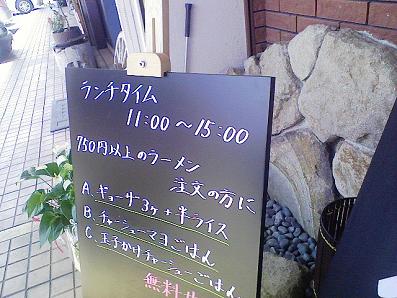 ランチタイム
11:00〜15:00
750円以上のラーメン
注文の方に
A. ギョーザ3ヶ+半ライス
B. チャーシューマヨごはん
C. 玉子かけチャーシューごはん
無料